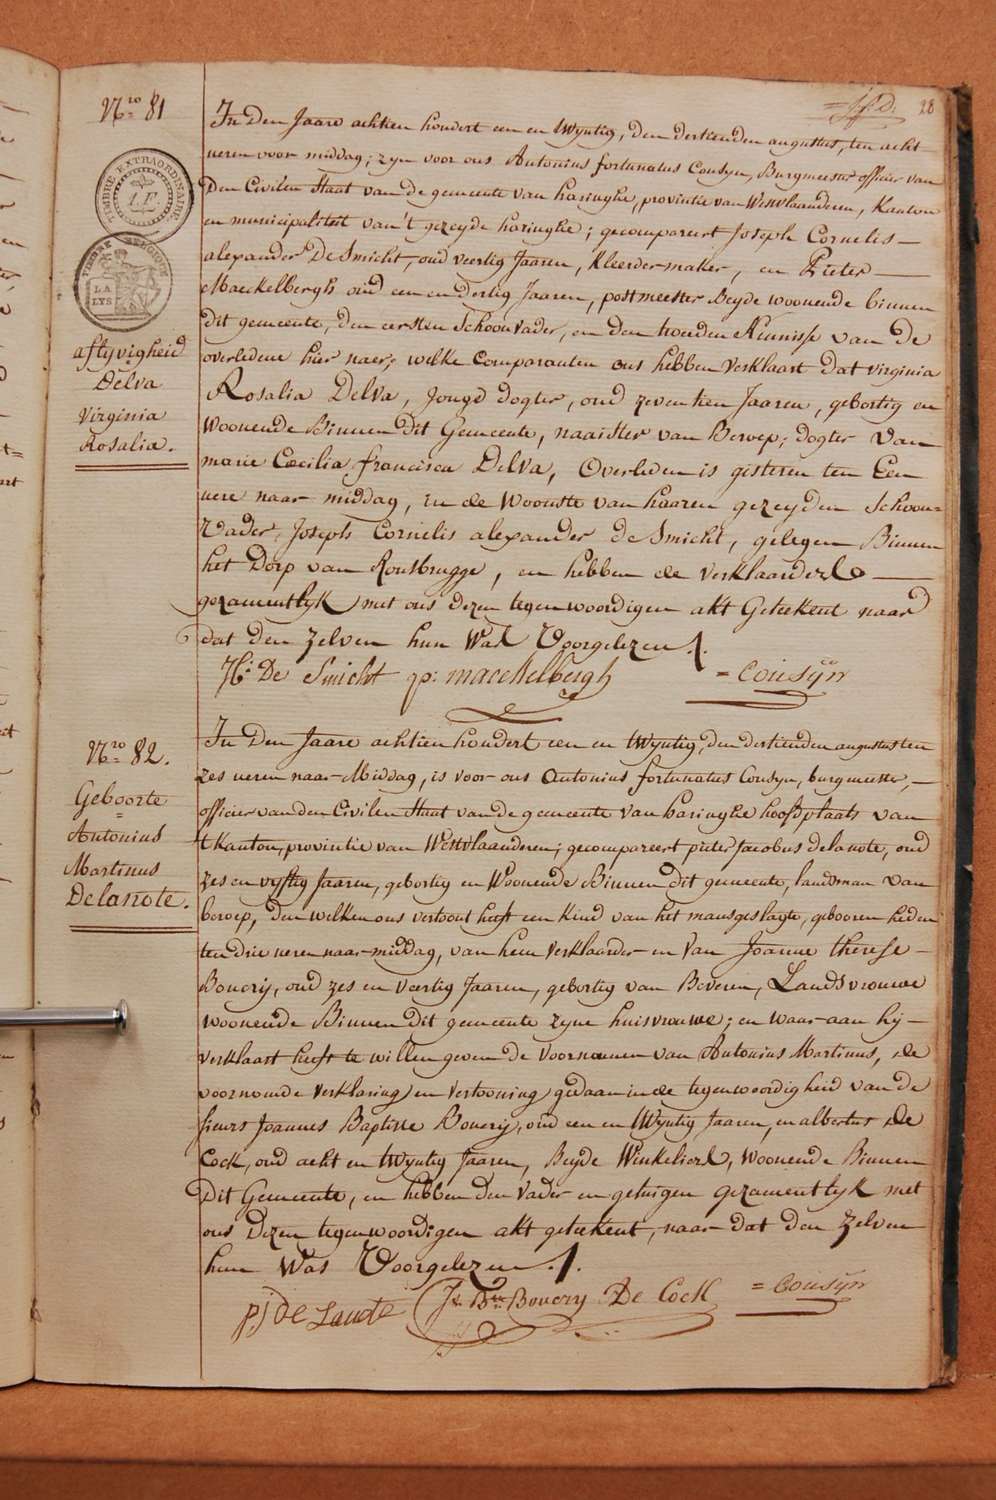 28
Nro 81
TIMBRE EXTRAORDINAIRE
1. F.
LA LYS
aflyvigheid
Delva
Virginia
Rosalia.
In Den Jaare achtien hondert een en twyntig, den dertienden augustus, ten acht
ueren voor middag; zyn voor ons Antonius fortunatus Cousyn, Burgmeester officier van
Den Civilen Staat van de gemeente van haringhe, provintie van Westvlaanderen, Kanton
en municipaliteit van't gezeyde haringhe; gecompareert Joseph Cornelis
alexander De Smicht, oud veertig Jaaren, Kleerdermaker, en Pieter
Maeckelbergh oud een en dertig Jaaren, postmeester Beyde woonende binnen
dit gemeente, den eersten Schoonvader, en den tweeden Kennisse van de
overledene hier naer; welke Comparanten ons hebben verklaart dat virginia
Rosalia Delva, Jonge dogter, oud zeventien Jaaren, gebortig en
Woonende Binnen Dit Gemeente, naaister van Beroep; dogter van
marie Cæcilia francisca Delva, Overleden is gisteren ten Een
uere naar middag, in de Woonste van haaren gezeyden Schoon=
Vader, Joseph Cornelis alexander de Smicht, gelegen Binnen
het Dorp van Rousbrugge, en hebben de verklaarders
gezamentlyk met ons dezen tegenwoordigen akt Geteekent naar
dat den Zelven hun Was Voorgelezen ./.
De Smicht p: maeckelbergh =Cousÿn
Nro 82.
Geboorte
=
Antonius
Martinus
Delanote.
In Den Jaare achtien hondert een en twyntig, den dertienden augustus ten
zes ueren naar Middag, is voor ons Antonius fortunatus Cousyn, burgmeester,
officier van den Civilen Staat van de gemeente van haringhe hoofdplaats van
t Kanton, provintie van Westvlaanderen; gecompareert pieter Jacobus delanote, oud
zes en vyftig Jaaren, gebortig en Woonende Binnen dit gemeente, landsman van
beroep, den welken ons vertoont heeft een Kind van het mansgeslagte, gebooren heden
ten drie ueren naar middag, van hem Verklaarder en van Joanne therese
Bouery, oud zes en veertig Jaaren, gebortig van Beveren, Landsvrouwe
woonende Binnen dit gemeente zyne huisvrouwe; en waar aan hy
verklaart heeft te willen geven de voornamen van Antonius Martinus, de
voornomde verklaring en vertooning gedaan in de tegenwoordigheid van de
sieurs Joannes Baptiste Bouery, oud een en twyntig Jaaren, en albertus De
Cock, oud acht en twyntig Jaaren, Beyde Winkeliers, woonende Binnen
Dit Gemeente, en hebben den Vader en getuigen gezamentlyk met
ons Dezen tegenwoordigen akt geteekent, naar dat den Zelven
hun Was Voorgelezen ./.
pj De Lanote Js Bte Bouery De Cock =Cousÿn